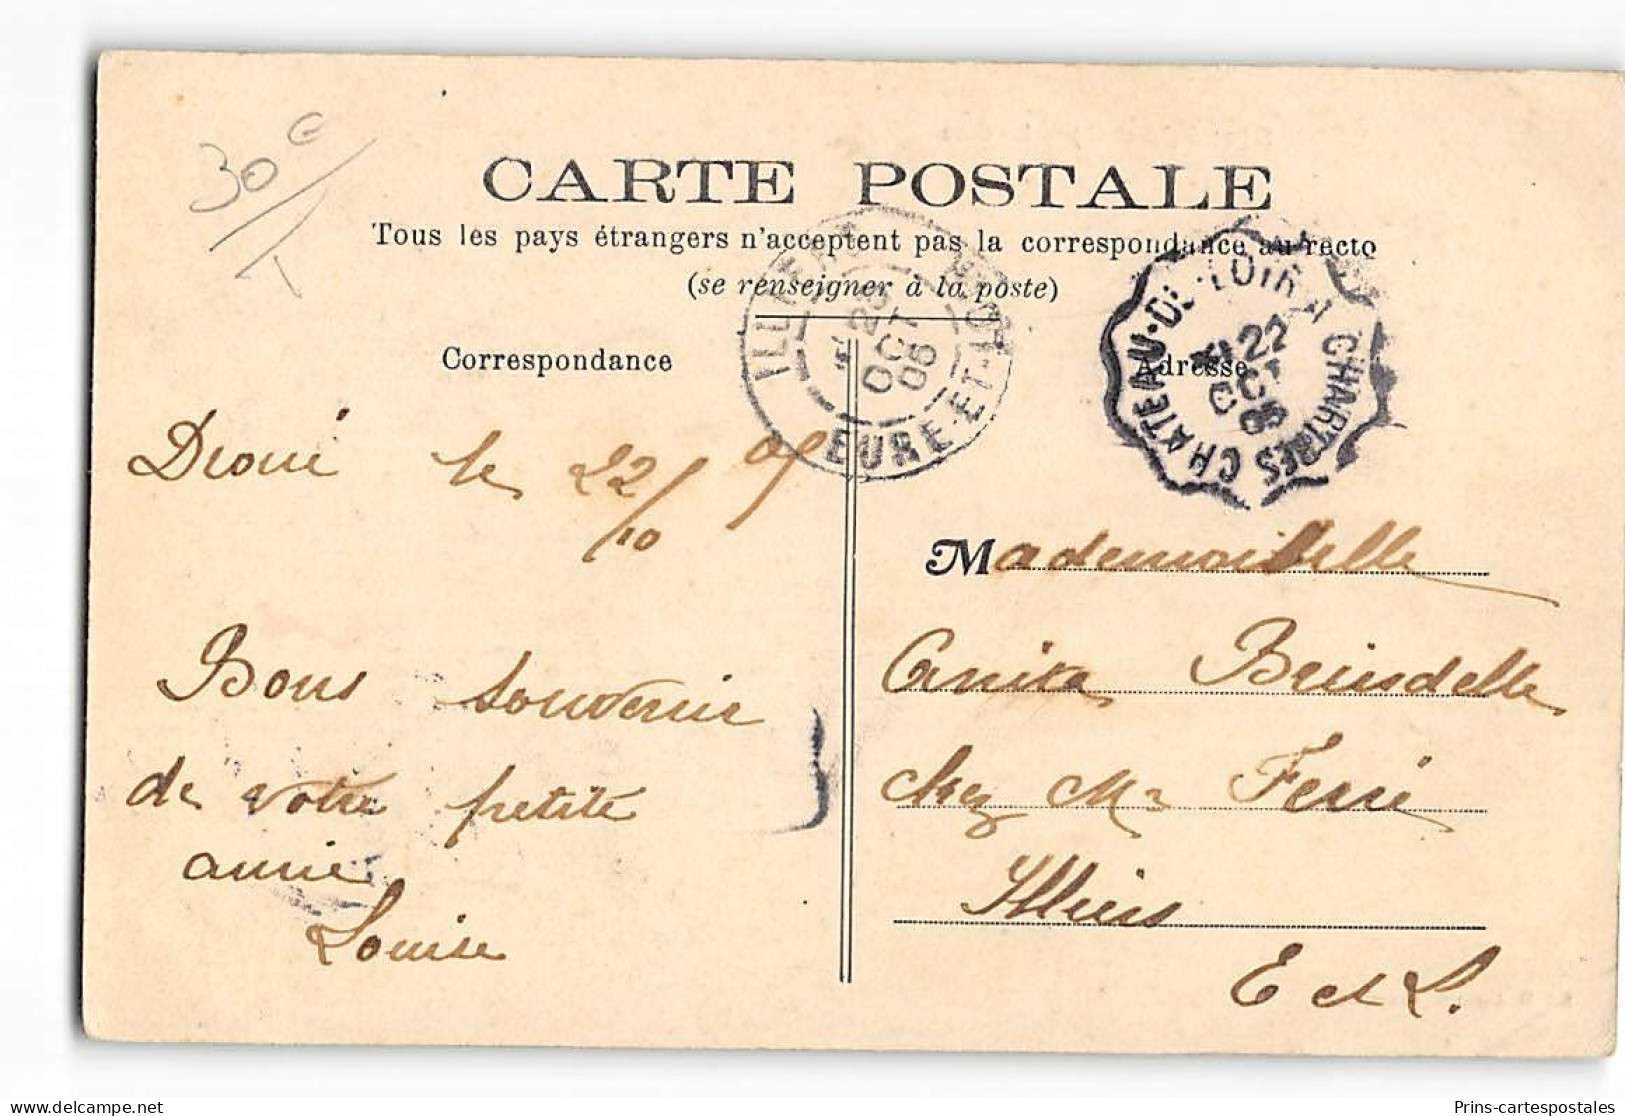 30€
CARTE POSTALE
Tous les pays étrangers n'acceptent pas la correspondance au recto
(se renseigner à la poste)
Correspondance
Adresse
ILLIERS
23
OCT
05
EURE-ET-LOIR
CHATEAU-DU-LOIR A CHARTRES
22
OCT
05
Droué le 22/10 05
Bons souvenir
de votre petite
amie
Louise
Mademoiselle
Anita Brisdelle
chez Mr Ferré
Illiers
E et L.
Prins-cartespostales